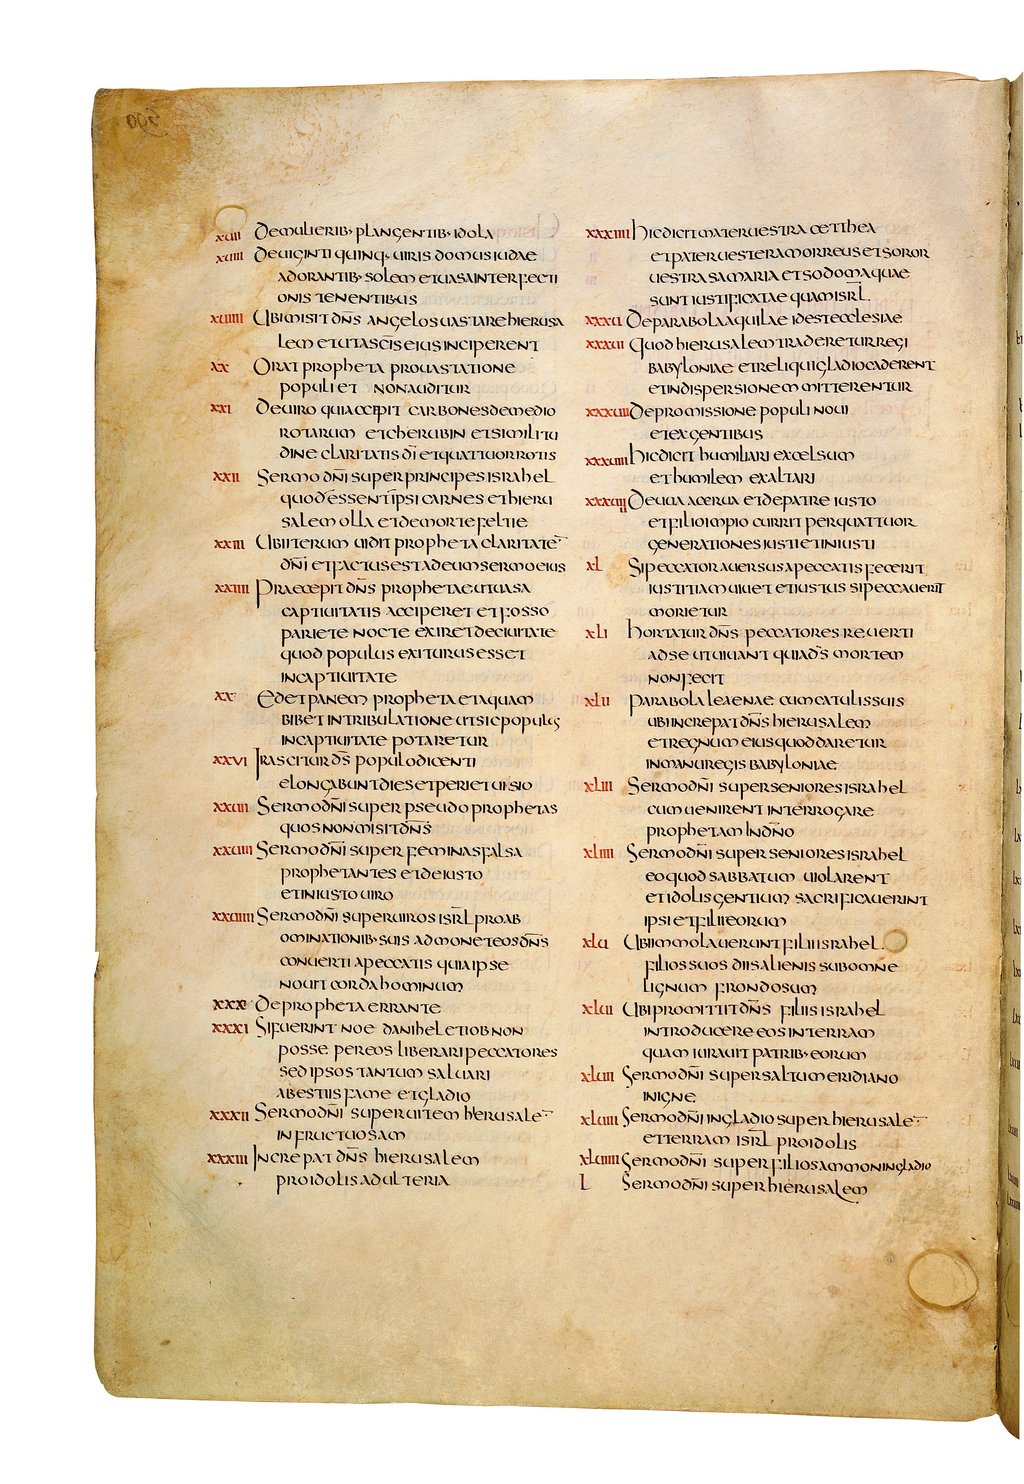 xuii De mulierib; plangentib; idola
xuiii De uiginti quinq; uiris domus iudae
adorantib; solem et uasa interfecti
onis tenentibus
xuiiii Ubi misit dn̄s angelos uastare hierusa
lem et ut a sc̄is eius inciperent
xx Orat propheta pro uastatione
populi et non auditur
xxi De uiro qui accepit carbones de medio
rotarum et cherubin et similitu
dine claritatis dī et quattuor rotis
xxii Sermo dn̄i super principes israhel
quod essent ipsi carnes et hieru
salem olla et de morte feltie
xxiii Ubi iterum uidit propheta claritatē
dn̄i et factus est ad eum sermo eius
xxiiii Praecepit dn̄s prophetae ut uasa
captiuitatis acciperet et fosso
pariete nocte exiret de ciuitate
quod populus exiturus esset
in captiuitate
xx Edet panem propheta et aquam
bibet in tribulatione ut sic populus
in captiuitate potaretur
xxvi Irascitur d̄s populo dicenti
elongabunt dies et periet uisio
xxuii Sermo dn̄i super pseudo prophetas
quos non misit dn̄s
xxuiii Sermo dn̄i super feminas falsa
prophetantes et de iusto
et iniusto uiro
xxuiiii Sermo dn̄i super uiros isrl̄ pro ab
ominationib; suis admonet eos dn̄s
conuerti a peccatis quia ipse
nouit corda hominum
xxx De propheta errante
xxxi Si fuerint noe danihel et iob non
posse per eos liberari peccatores
sed ipsos tantum saluari
a bestiis fame et gladio
xxxii Sermo dn̄i super uitem hierusalē
infructuosam
xxxiii Increpat dn̄s hierusalem
pro idolis adulteria
xxxiiii Hic dicit mater uestra cetthea
et pater uester amorreus et soror
uestra samaria et sodoma quae
sunt iustificatae quam isrl̄
xxxu De parabola aquilae id est ecclesiae
xxxui Quod hierusalem traderetur regi
babyloniae et reliqui gladio caderent
et in dispersionem mitterentur
xxxuii De promissione populi noui
et ex gentibus
xxxuiii Hic dicit humiliari excelsum
et humilem exaltari
xxxuiiii De uua acerua et de patre iusto
et filio impio currit per quattuor
generationes iusti et iniusti
xl Si peccator auersus a peccatis fecerit
iustitiam uiuet et iustus si peccauerit
morietur
xli Hortatur dn̄s peccatores reuerti
ad se ut uiuant quia d̄s mortem
non fecit
xlii Parabola leaenae cum catulis suis
ubi increpat dn̄s hierusalem
et regnum eius quod daretur
in manu regis babyloniae
xliii Sermo dn̄i super seniores israhel
cum uenirent interrogare
prophetam in dn̄o
xliiii Sermo dn̄i super seniores israhel
eo quod sabbatum uiolarent
et idolis gentium sacrificauerint
ipsi et filii eorum
xlu Ubi immolauerunt filii israhel
filios suos diis alienis sub omne
lignum frondosum
xlui Ubi promittit dn̄s filiis israhel
introducere eos in terram
quam iurauit patrib; eorum
xluii Sermo dn̄i super saltum eridiano
in igne
xluiii Sermo dn̄i in gladio super hierusalē
et terram isrl̄ pro idolis
xluiiii Sermo dn̄i super filios ammon in gladio
l Sermo dn̄i super hierusalem